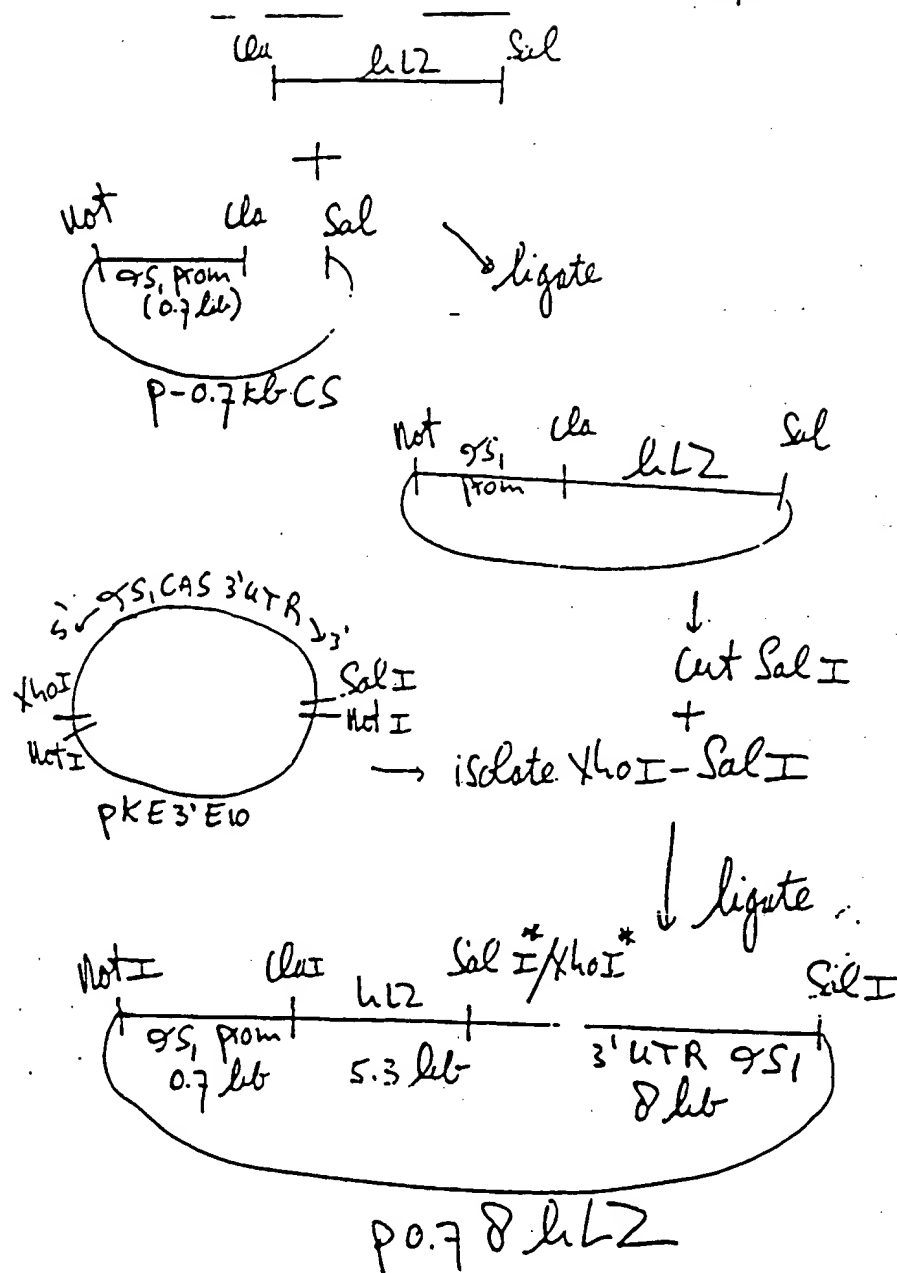 Cla hLZ Sal
+
Not Cla Sal
αS₁ prom
(0.7 kb)
ligate
p-0.7kb CS
Not αS₁ prom Cla hLZ Sal
5' αS₁CAS 3'UTR 3'
XhoI
NotI
Sal I
Not I
pKE3'E10
Cut Sal I
+
→ isolate XhoI-Sal I
ligate
NotI ClaI hLZ Sal I*/XhoI* Sal I
αS₁ prom
0.7 kb
5.3 kb
3' UTR αS₁
8 kb
p0.7 8 hLZ